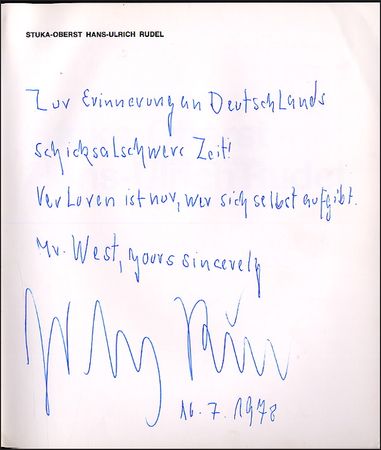 STUKA-OBERST HANS-ULRICH RUDEL
Zur Erinnerung an Deutschlands
schicksalschwere Zeit!
Verloren ist nur, wer sich selbst aufgibt.
Mr. West, yours sincerely
16.7.1978